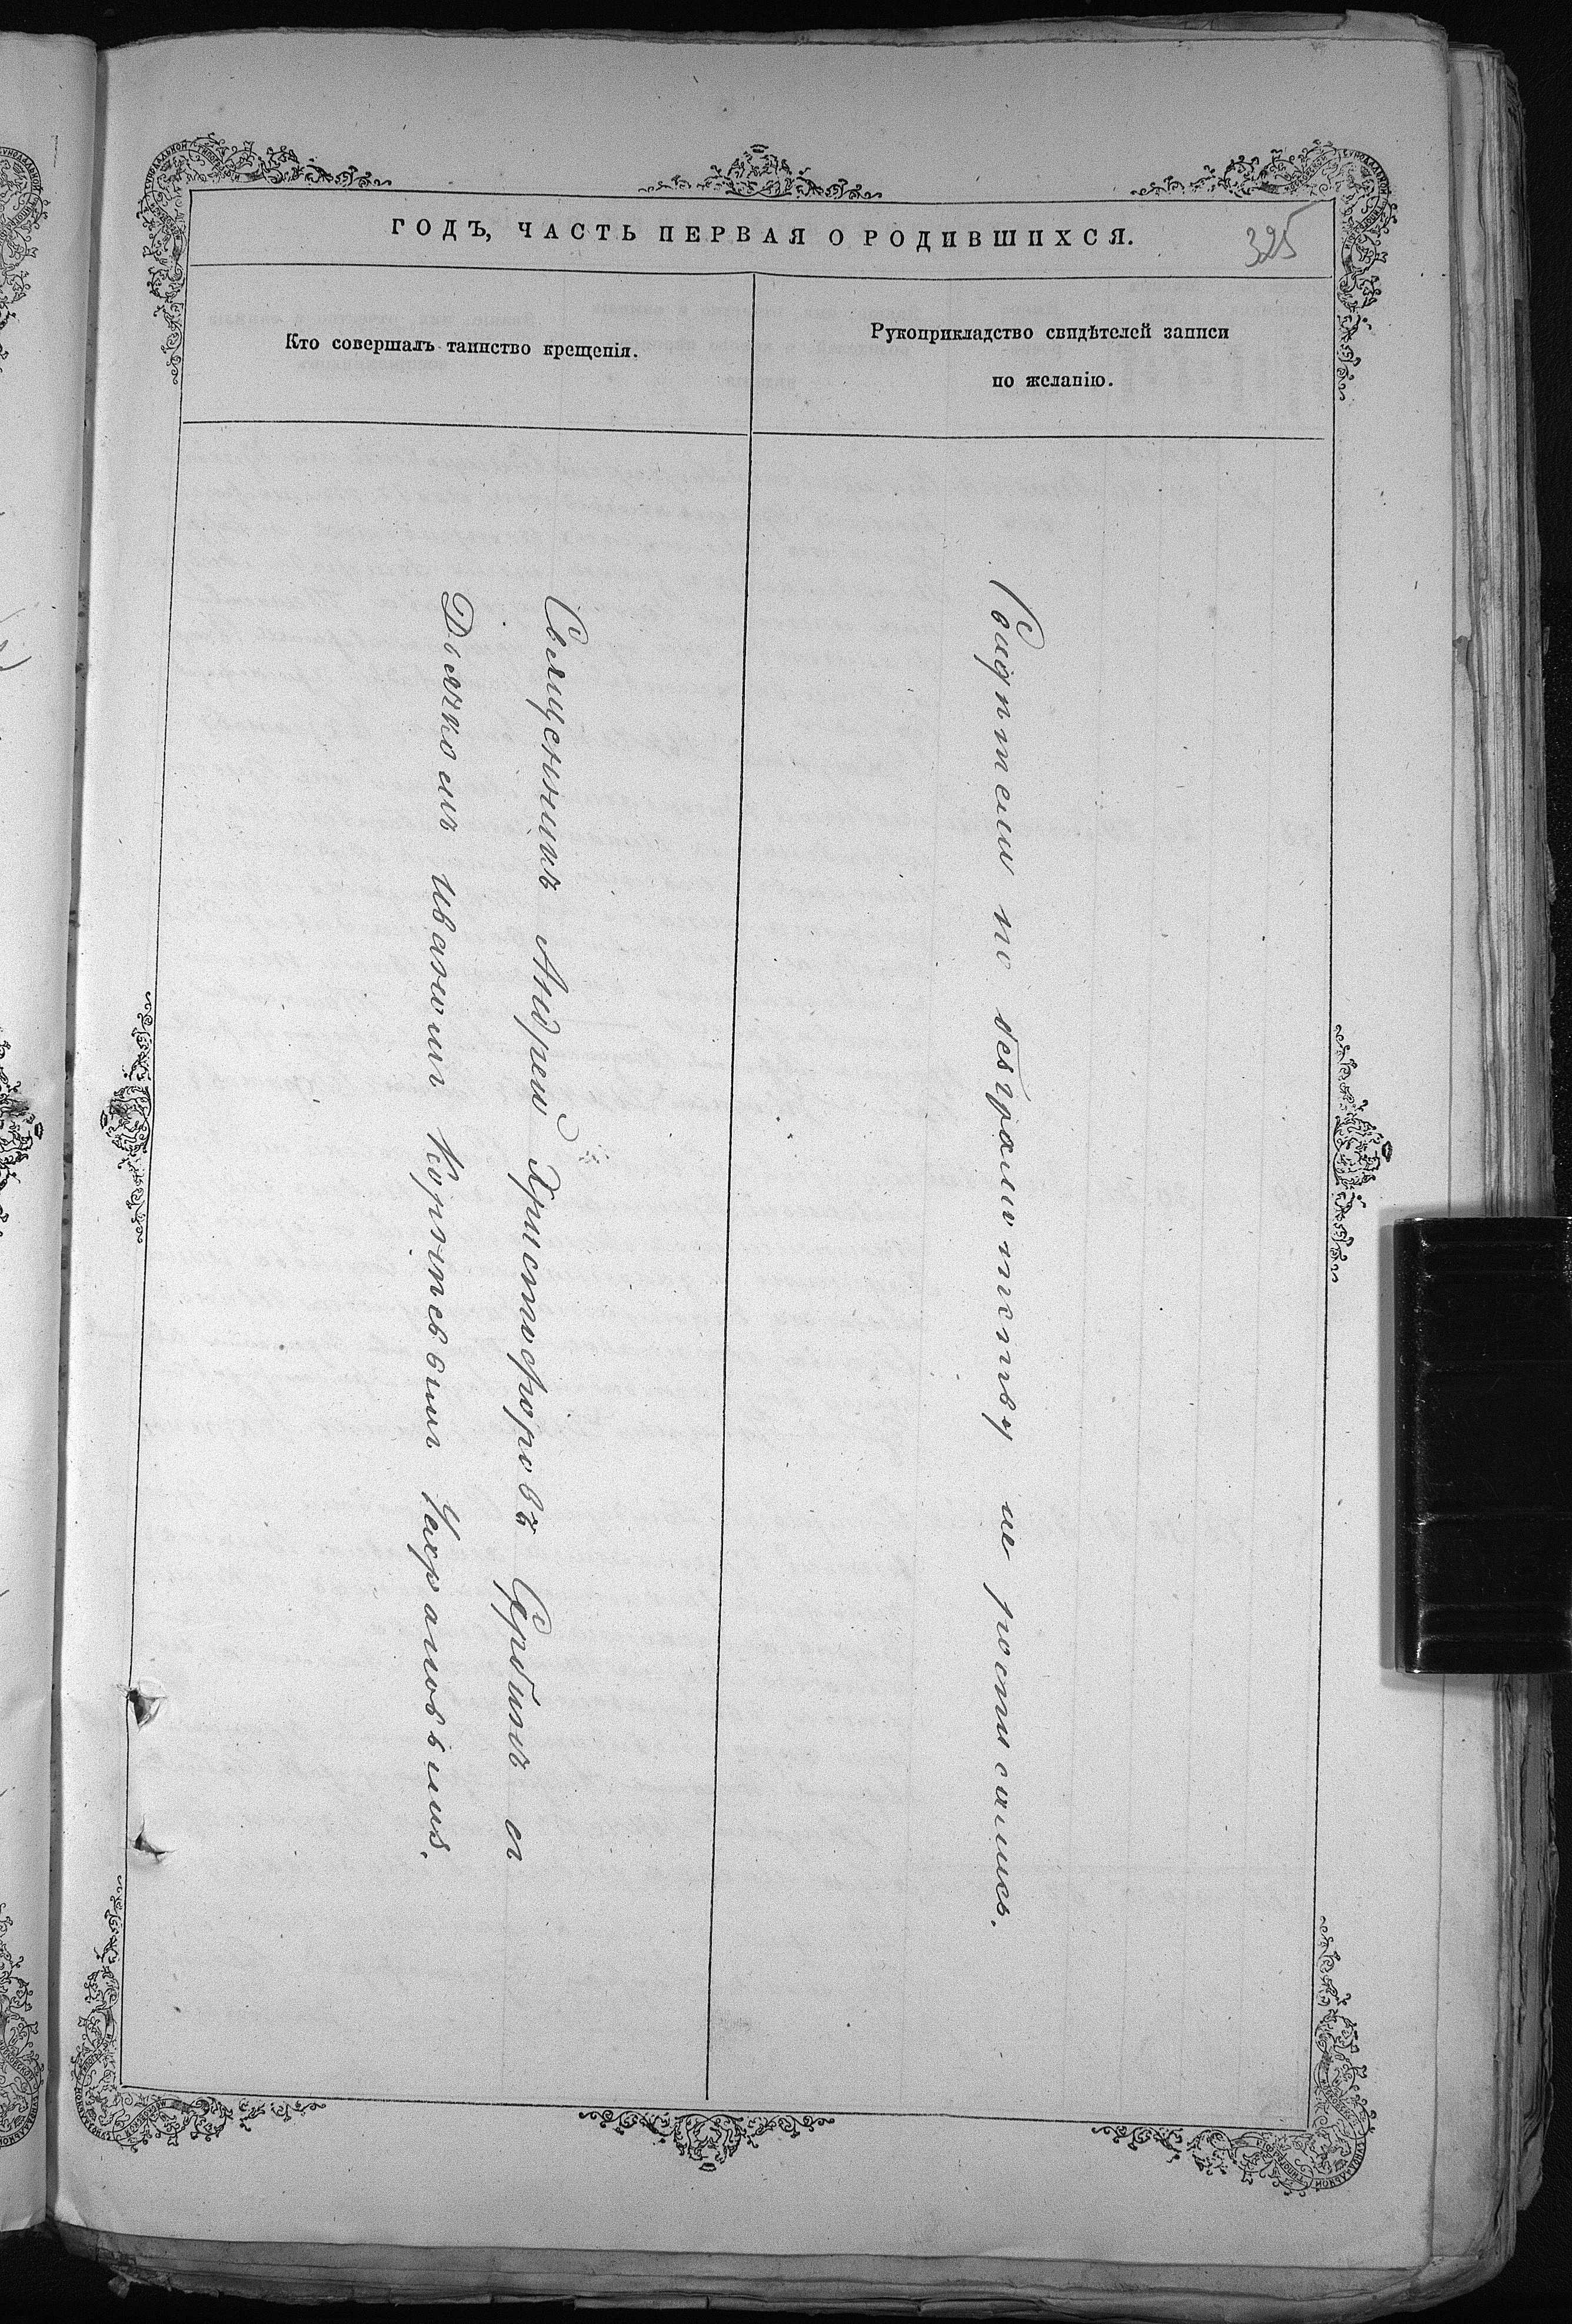 ГОДЪ, ЧАСТЬ ПЕРВАЯ О РОДИВШИХСЯ.
325
Кто совершалъ таинство крещенія.
Рукоприкладство свидѣтелей записи
по желанію.
Священникъ Андрей Христофоровъ Сербинъ съ
Дьячкомъ Иваномъ Корніевымъ
по безграмотству не росписались.